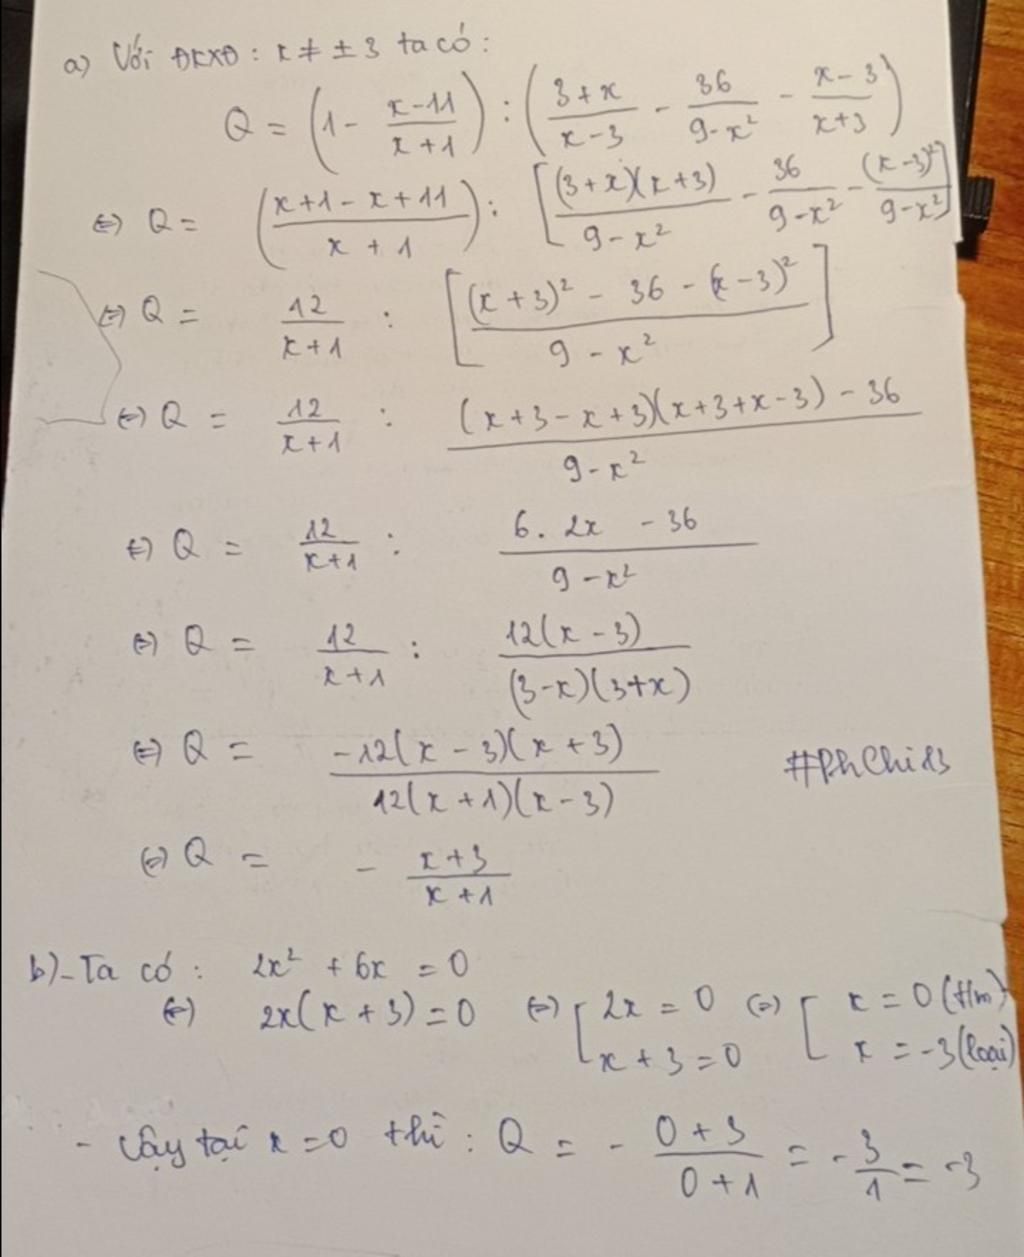 a) Với ĐKXĐ : x ≠ ± 3 ta có :
Q = (1 - (x-11)/(x+1)) : ((3+x)/(x-3) - 36/(9-x²) - (x-3)/(x+3))
⇔ Q = ((x+1-x+11)/(x+1)) : [((3+x)(x+3))/(9-x²) - 36/(9-x²) - (x-3)²/(9-x²)]
⇔ Q = 12/(x+1) : [((x+3)² - 36 - (x-3)²)/(9-x²)]
⇔ Q = 12/(x+1) : ((x+3-x+3)(x+3+x-3) - 36)/(9-x²)
⇔ Q = 12/(x+1) : (6. 2x - 36)/(9-x²)
⇔ Q = 12/(x+1) : 12(x-3)/((3-x)(3+x))
⇔ Q = -12(x-3)(x+3)/(12(x+1)(x-3))
#PhChi
⇔ Q = - (x+3)/(x+1)
b)- Ta có : 2x² + 6x = 0
⇔ 2x(x+3) = 0 ⇔ [2x = 0 ⇔ [x = 0 (t/m)
x+3 = 0 x = -3 (loại)
- Vậy tại x = 0 thì : Q = - (0+3)/(0+1) = - 3/1 = -3